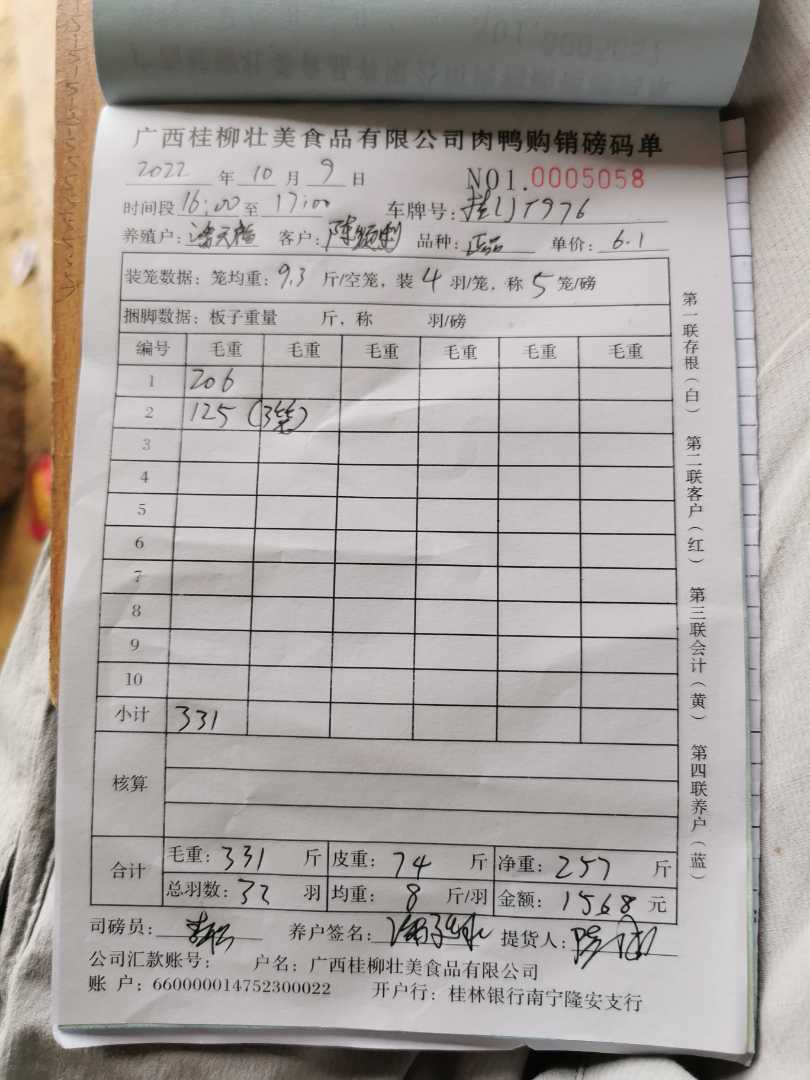 广西桂柳壮美食品有限公司肉鸭购销磅码单
2022 年 10 月 9 日 NO1.0005058
时间段 16:00 至 17:00 车牌号: 桂 T976
养殖户: 客户: 陈 品种: 正品 单价: 6.1
装笼数据: 笼均重: 9.3 斤/空笼, 装 4 羽/笼, 称 5 笼/磅
捆脚数据: 板子重量 斤, 称 羽/磅
编号 毛重 毛重 毛重 毛重 毛重 毛重
1 206
2 125 (3笼)
3
4
5
6
7
8
9
10
小计 331
核算
合计 毛重: 331 斤 皮重: 74 斤 净重: 257 斤
总羽数: 32 羽 均重: 8 斤/羽 金额: 1568 元
司磅员: 养户签名: 提货人:
公司汇款账号: 户名: 广西桂柳壮美食品有限公司
账 户: 660000014752300022 开户行: 桂林银行南宁隆安支行
第一联存根(白) 第二联客户(红) 第三联会计(黄) 第四联养户(蓝)